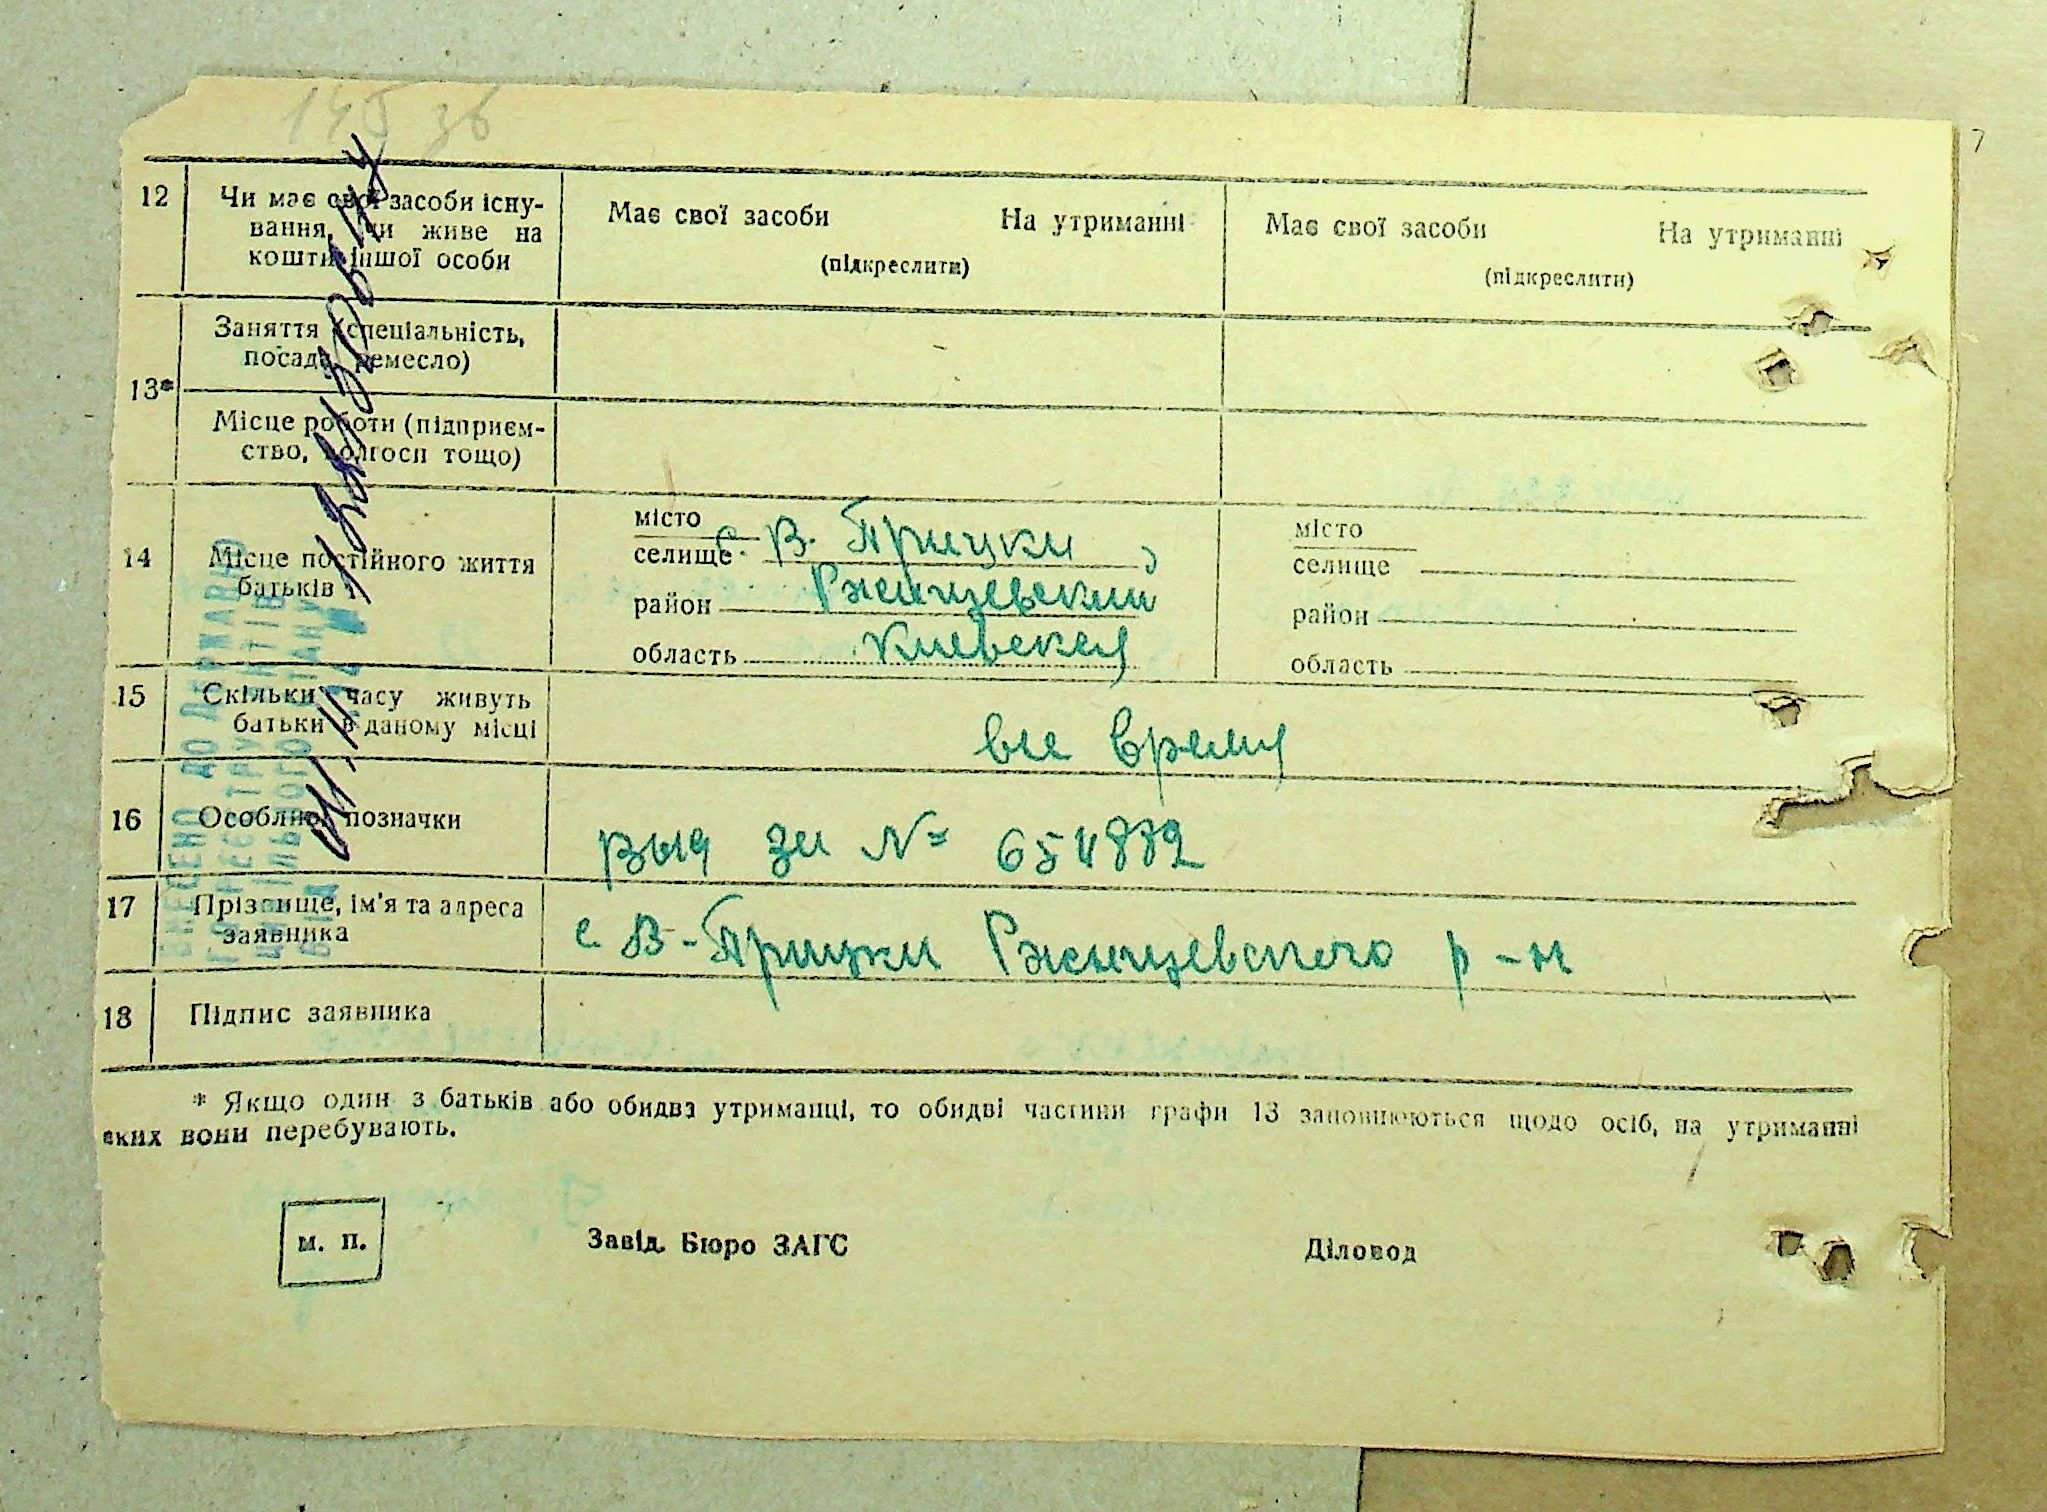 145 зв
12 Чи має свої засоби існу-
вання, чи живе на
кошти іншої особи
Має свої засоби На утриманні
(підкреслити)
Має свої засоби На утриманні
(підкреслити)
13*
Заняття (спеціальність,
посада, ремесло)
Місце роботи (підприєм-
ство, колгосп тощо)
14 Місце постійного життя
батьків
місто
селище с. В. Прицки
район Ржищевский
область Киевская
місто
селище
район
область
15 Скільки часу живуть
батьки в даному місці
все время
16 Особливі позначки
выд зи № 654882
17 Прізвище, ім'я та адреса
заявника
с. В-Прицки Ржищевского р-н
18 Підпис заявника
* Якщо один з батьків або обидва утриманці, то обидві частини графи 13 заповнюються щодо осіб, на утриманні
яких вони перебувають.
м. п.
Завід. Бюро ЗАГС
Діловод
ВНЕСЕНО ДО ДЕРЖАВНОГО
РЕЄСТРУ АКТІВ
ЦИВІЛЬНОГО СТАНУ